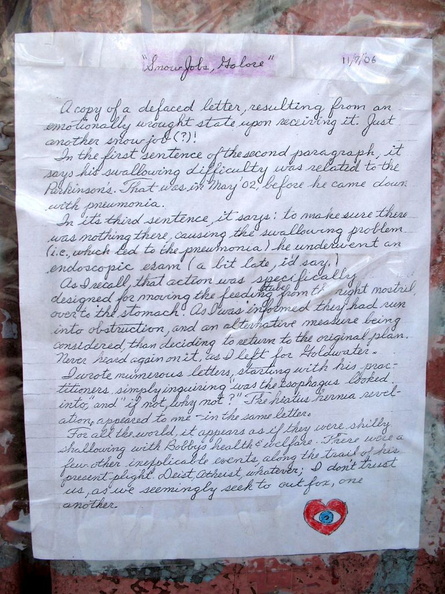 "Snow Jobs, Galore" 11/7/06
A copy of a defaced letter, resulting from an
emotionally wrought state upon receiving it. Just
another snow job (?)!
In the first sentence of the second paragraph, it
says his swallowing difficulty was related to the
Parkinsons. That was in May '02, before he came down
with pneumonia.
In its third sentence, it says: to make sure there
was nothing there, causing the swallowing problem
(i.e., which led to the pneumonia) he underwent an
endoscopic exam (a bit late, i'd say.)
As I recall that action was specifically
designed for moving the feeding tube from the right nostril
over to the stomach. As I was informed they had run
into obstruction, and an alternative measure being
considered, than deciding to return to the original plan.
Never heard again on it, as I left for Goldwater.
I wrote numerous letters, starting with his prac-
titioners, simply inquiring "was the esophagus looked
into," and "if not, why not?" The hiatus hernia revel-
ation, appeared to me - in the same letter.
For all the world, it appears as if they were shilly
shallowing with Bobby's health & welfare. There were a
few other inexplicable events, along the trail of his
present plight. Deist, Atheist, whatever; I don't trust
us, as we seemingly seek to out-fox, one
another.